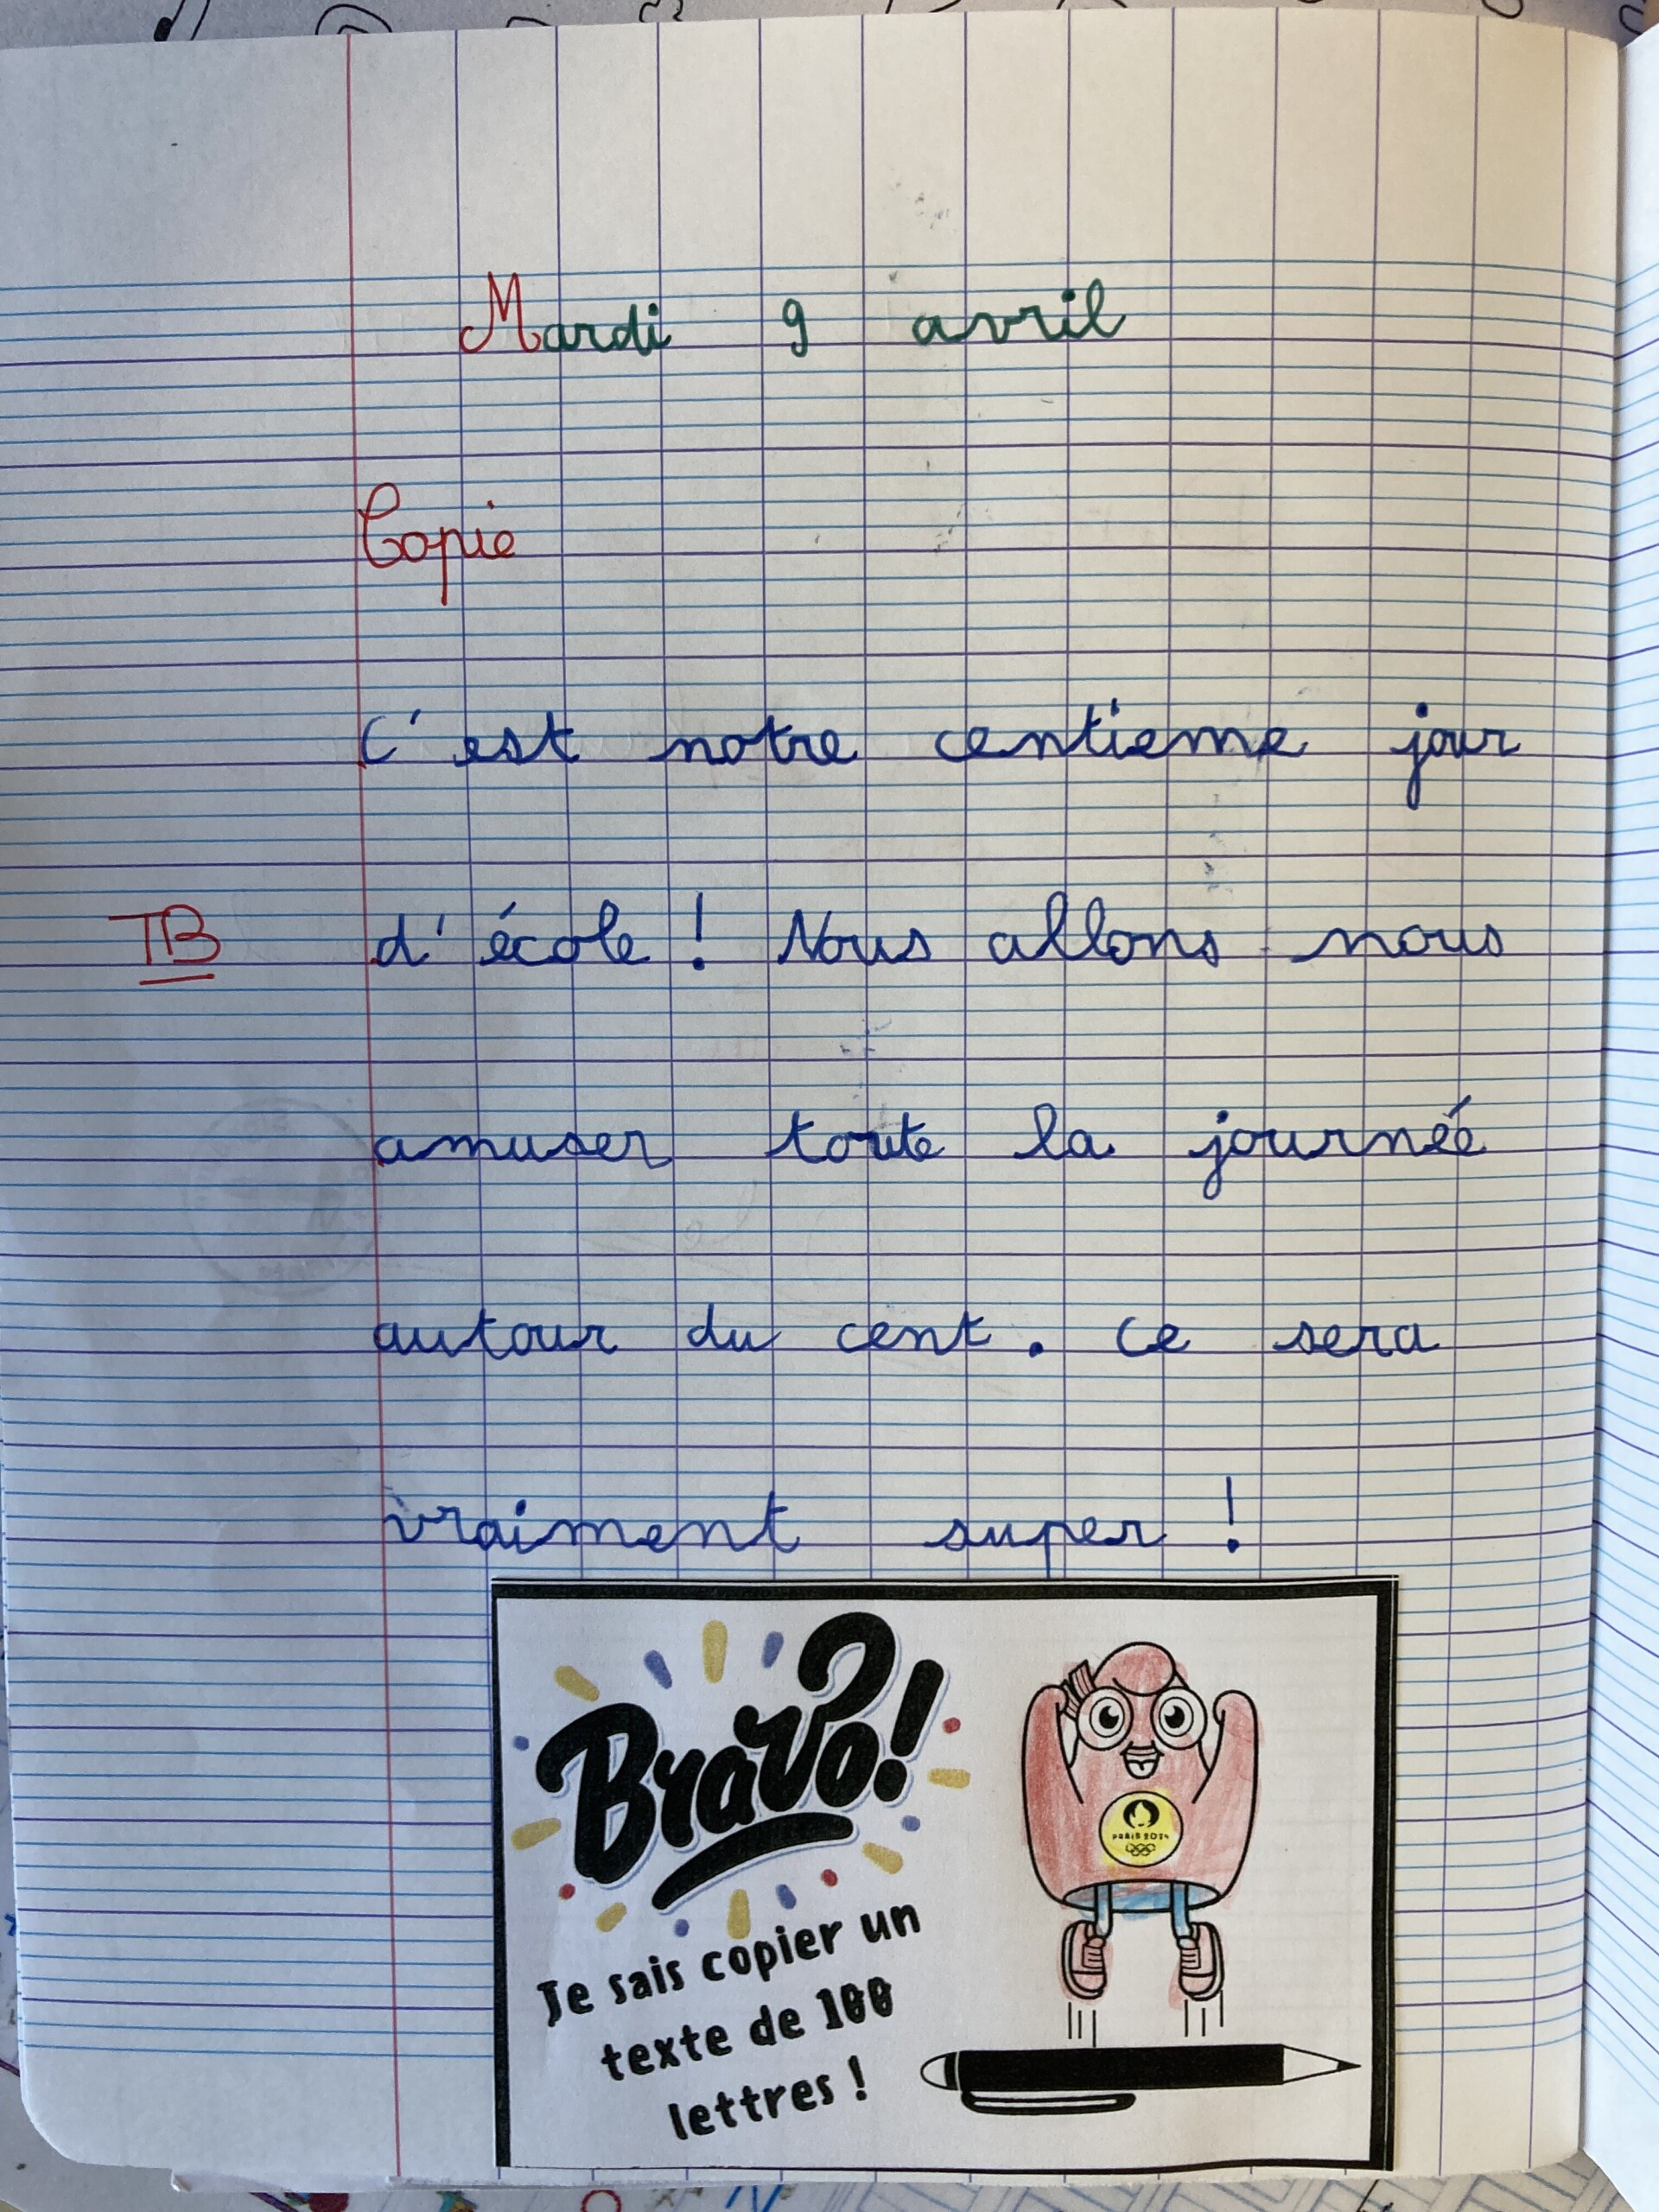 Mardi 9 avril
Copie
C'est notre centieme jour
TB
d'école ! Nous allons nous
amuser toute la journée
autour du cent. Ce sera
vraiment super !
Bravo!
Je sais copier un
texte de 100
lettres !
PARIS 2024